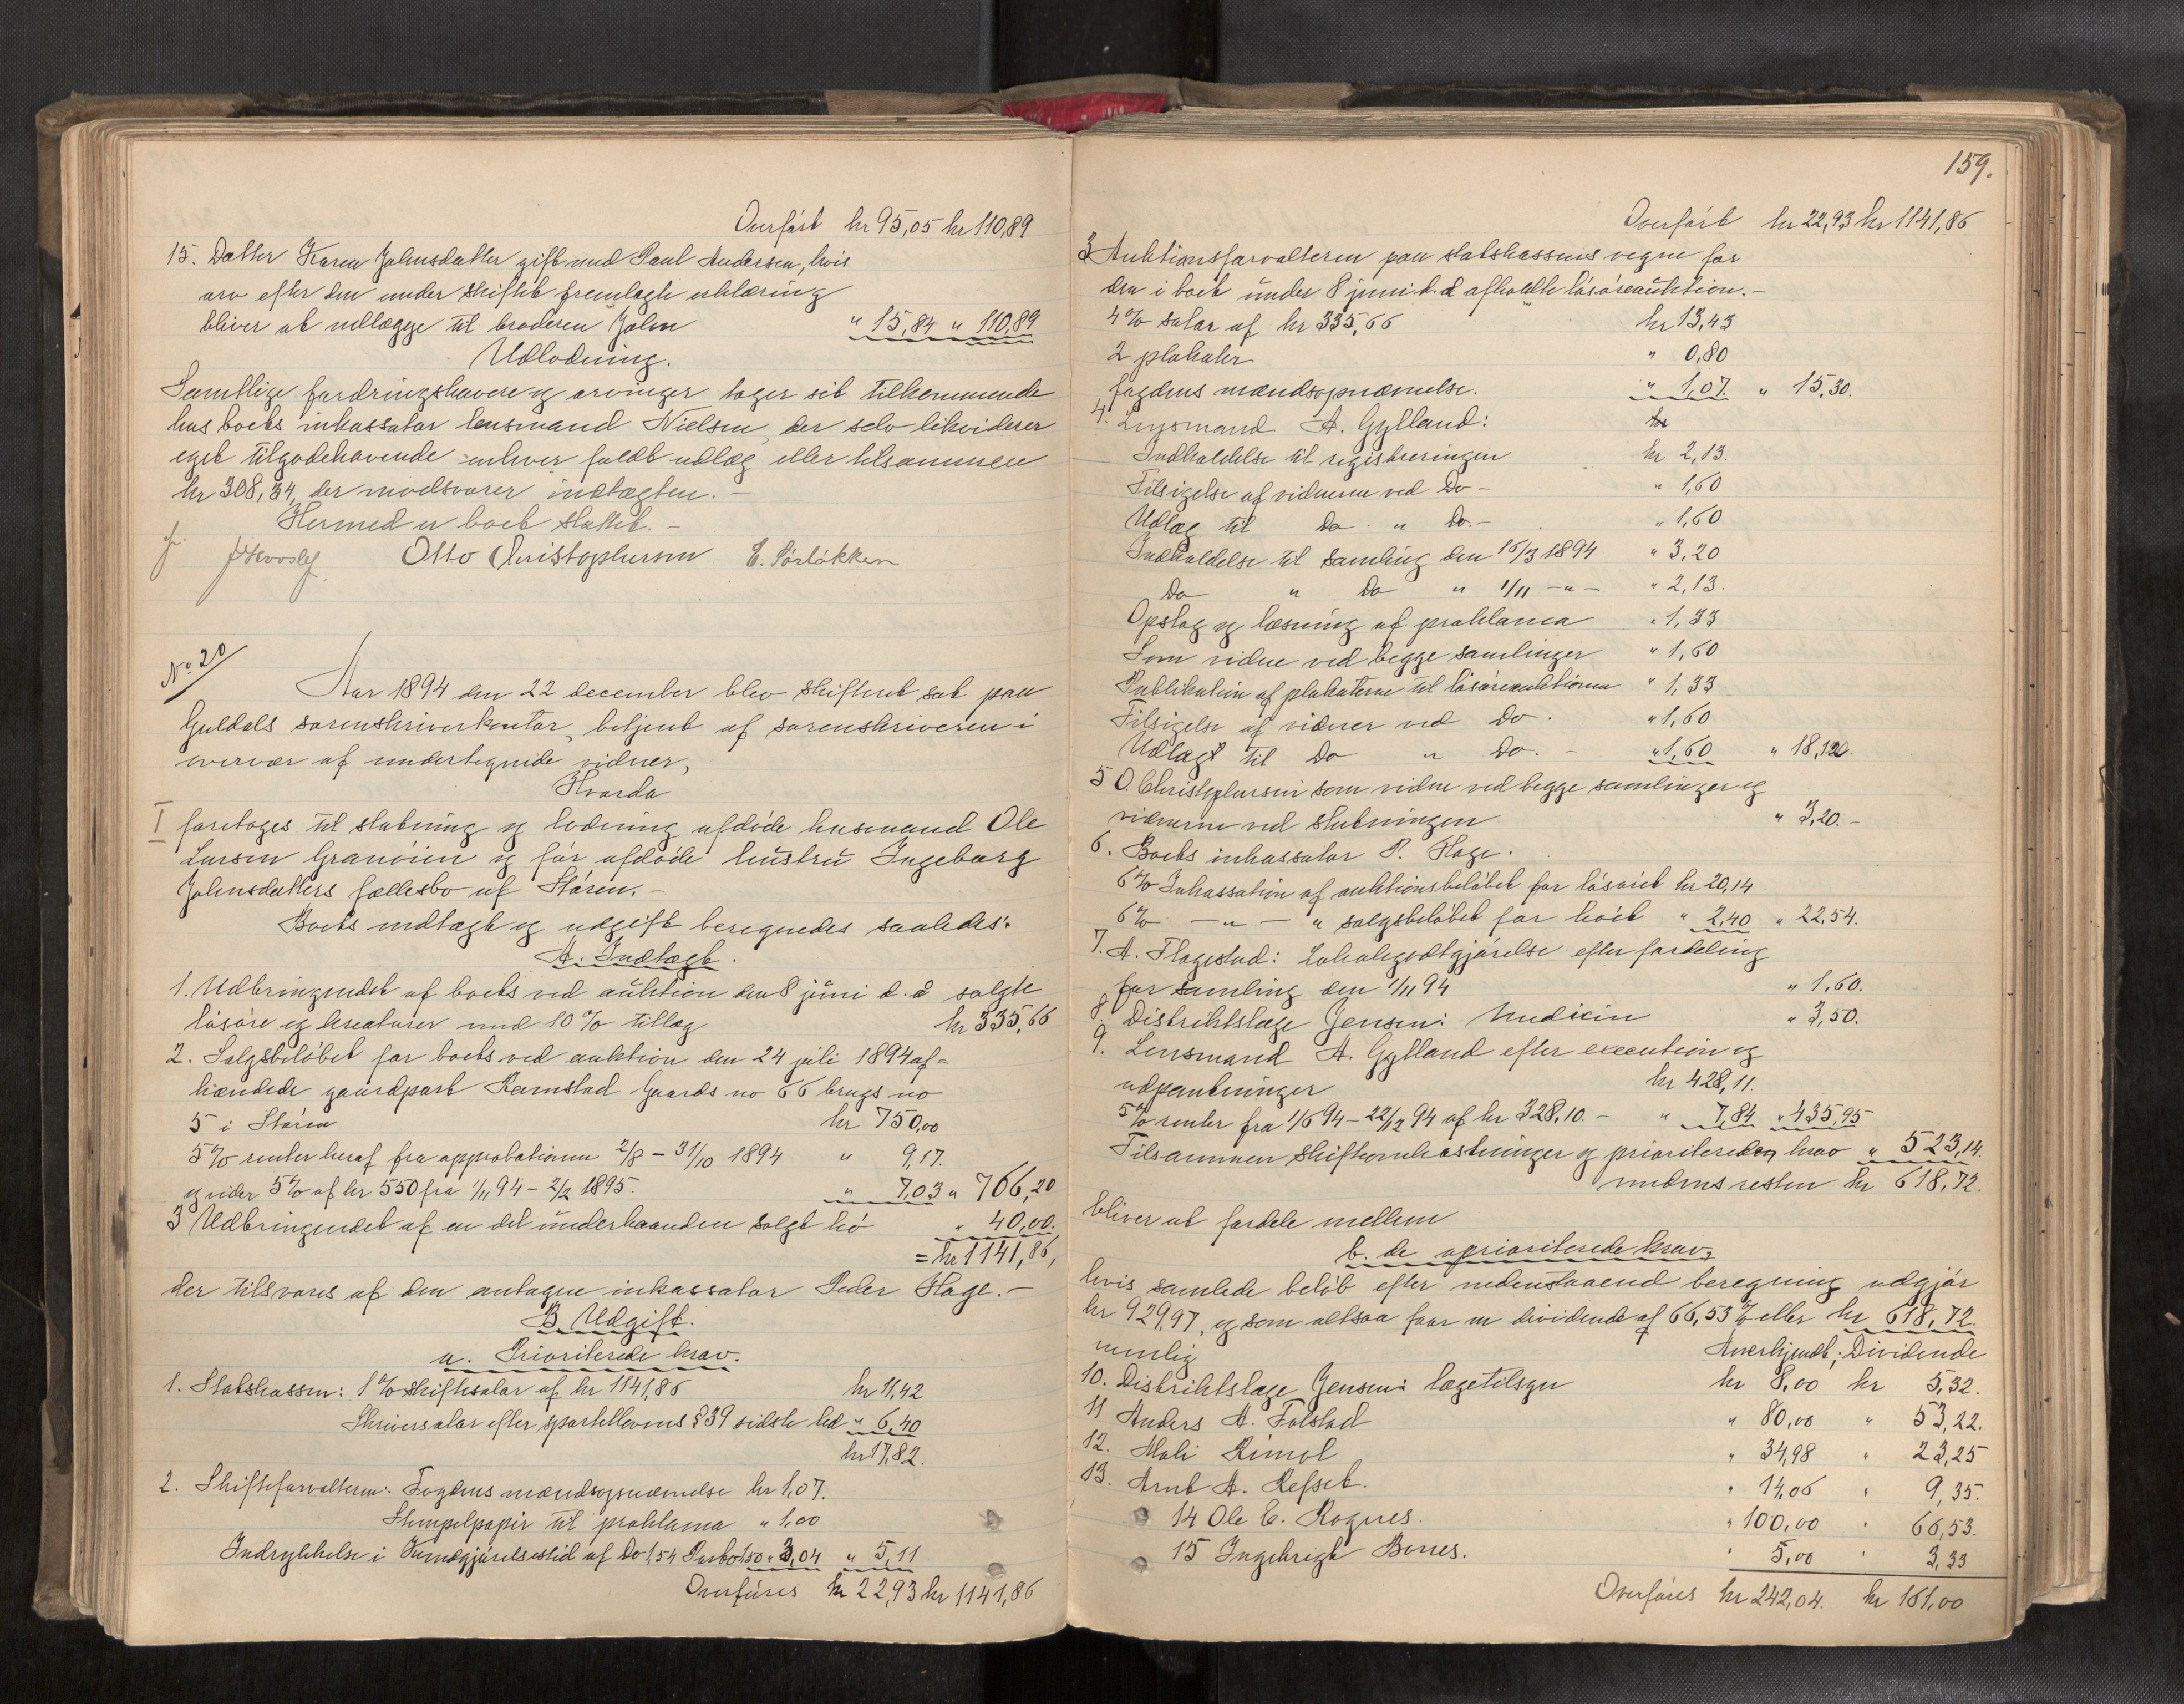 Overført kr 95,05 kr 110,89
15. Datter Karen Johnsdatter gift med Paul Andersen, hvis
arv efter den under skiftet fremlagte erklæring
bliver at udlægge til broderen John " 15,84 " 110,89
Udlodning.
Samtlige fordringshavere og arvinger tager sit tilkommende
hos boets inkassator lensmand Nielsen, der selv likviderer
eget tilgodehavende enhver faldt udlæg eller tilsammen
kr 308,34, der modsvarer indtægten. –
Hermed er boet sluttet. –
Otto Christophersen E. Sørløkken
No 20
Aar 1894 den 22 december blev skifteret sat paa
Guldals sorenskriverkontor, betjent af sorenskriveren i
overvær af undertegnede vidner,
Hvorda
I foretoges til slutning og lodning afdøde husmand Ole
Larsen Granøien og før afdøde hustru Ingeborg
Johnsdatters fællesbo af Støren. –
Boets indtægt og udgift beregnedes saaledes:
A. Indtægt.
1. Udbringendet af boets ved auktion den 8 juni d. å solgte
løsøre og kreaturer med 10% tillæg kr 335,66
2. Salgsbeløbet for boets ved auktion den 24 juli 1894 af-
hændede gaardpart Ramstad Gaards no 66 brugs no
5 i Støren kr 750,00
5% renter heraf fra approbationen 2/8 – 31/10 1894 " 9,17.
og vider 5% af kr 550 fra 1/11 94 – 2/2 1895. " 7,03 " 766,20
3 Udbringendet af en del underhaanden solgt hø " 40,00.
= kr 1141,86,
der tilsvares af den antagne inkassator Peder Hage. –
B Udgift.
a. Prioriterede krav.
1. Statskassen: 1% skiftesalær af kr 1141,86 kr 11,42
Skriversalær efter sportellovens § 39 sidste led " 6,40
kr 17,82.
2. Skifteforvalteren: Fogdens mændsopnævnelse kr 1,07.
Stempelpapir til proklama " 1,00
Indrykkelse i Kundgjørelsestid af Do 1,54 Porto 1,50 " 3,04 " 5,11
Overføres kr 22,93 kr 1141,86
159.
Overført kr 22,93 kr 1141,86
3 Auktionsforvalteren paa statskassens vegne for
den i boet under 8 juni d. å afholdte løsøreauktion. –
4% salær af kr 335,66 kr 13,43
2 plakater " 0,80
fogdens mændsopnævnelse. " 1,07. " 15,30.
4. Lensmand A. Gylland:
Indkaldelse til registreringen kr 2,13.
Tilsigelse af vidnerne ved Do – " 1,60
Udlæg til Do " Do. – " 1,60
Indkaldelse til samling den 15/3 1894 " 3,20
Do " Do " 1/11 – " – " 2,13.
Opslag og læsning af proklama " 1,33
Som vidne ved begge samlinger " 1,60
Publikation af plakaterne til løsøreauktionen " 1,33
Tilsigelse af vidner ved Do. " 1,60
Udlagt til Do " Do. – " 1,60 " 18,120.
5 O. Christophersen som vidne ved begge samlinger og
vidnerne ved slutningen " 3,20. –
6. Boets inkassator P. Hage.
6% Inkassation af auktionsbeløbet for løsøret kr 20,14
6% – " – " salgsbeløbet for høet " 2,40 " 22,54.
7. A. Flagestad: Lokalegodtgjørelse efter fordeling
for samling den 1/11 94 " 1,60.
8. Distriktslæge Jensen: Medicin " 3,50.
9. Lensmand A. Gylland efter execution og
udpantninger kr 428,11.
5% renter fra 1/6 94 – 22/12 94 af kr 328,10. – " 7,84 " 435,95
Tilsammen skifteomkostninger og prioriterede krav " 523,14.
medens resten kr 618,72.
bliver at fordele mellem
b. de uprioriterede krav,
hvis samlede beløb efter nedenstaaend beregning udgjør
kr 929,97, og som altsaa faar en dividende af 66,53% eller kr 618,72.
nemlig Anerkjendt; Dividende
10. Distriktslæge Jensen: lægetilsyn kr 8,00 kr 5,32.
11 Anders A. Folstad " 80,00 " 53,22.
12. Mali Rimol " 34,98 " 23,25
13. Arnt A. Refset. " 14,06 " 9,35.
14 Ole E. Rognes. " 100,00 " 66,53.
15 Ingebrigt Bones. " 5,00 " 3,33
Overføres kr 242,04. kr 161,00